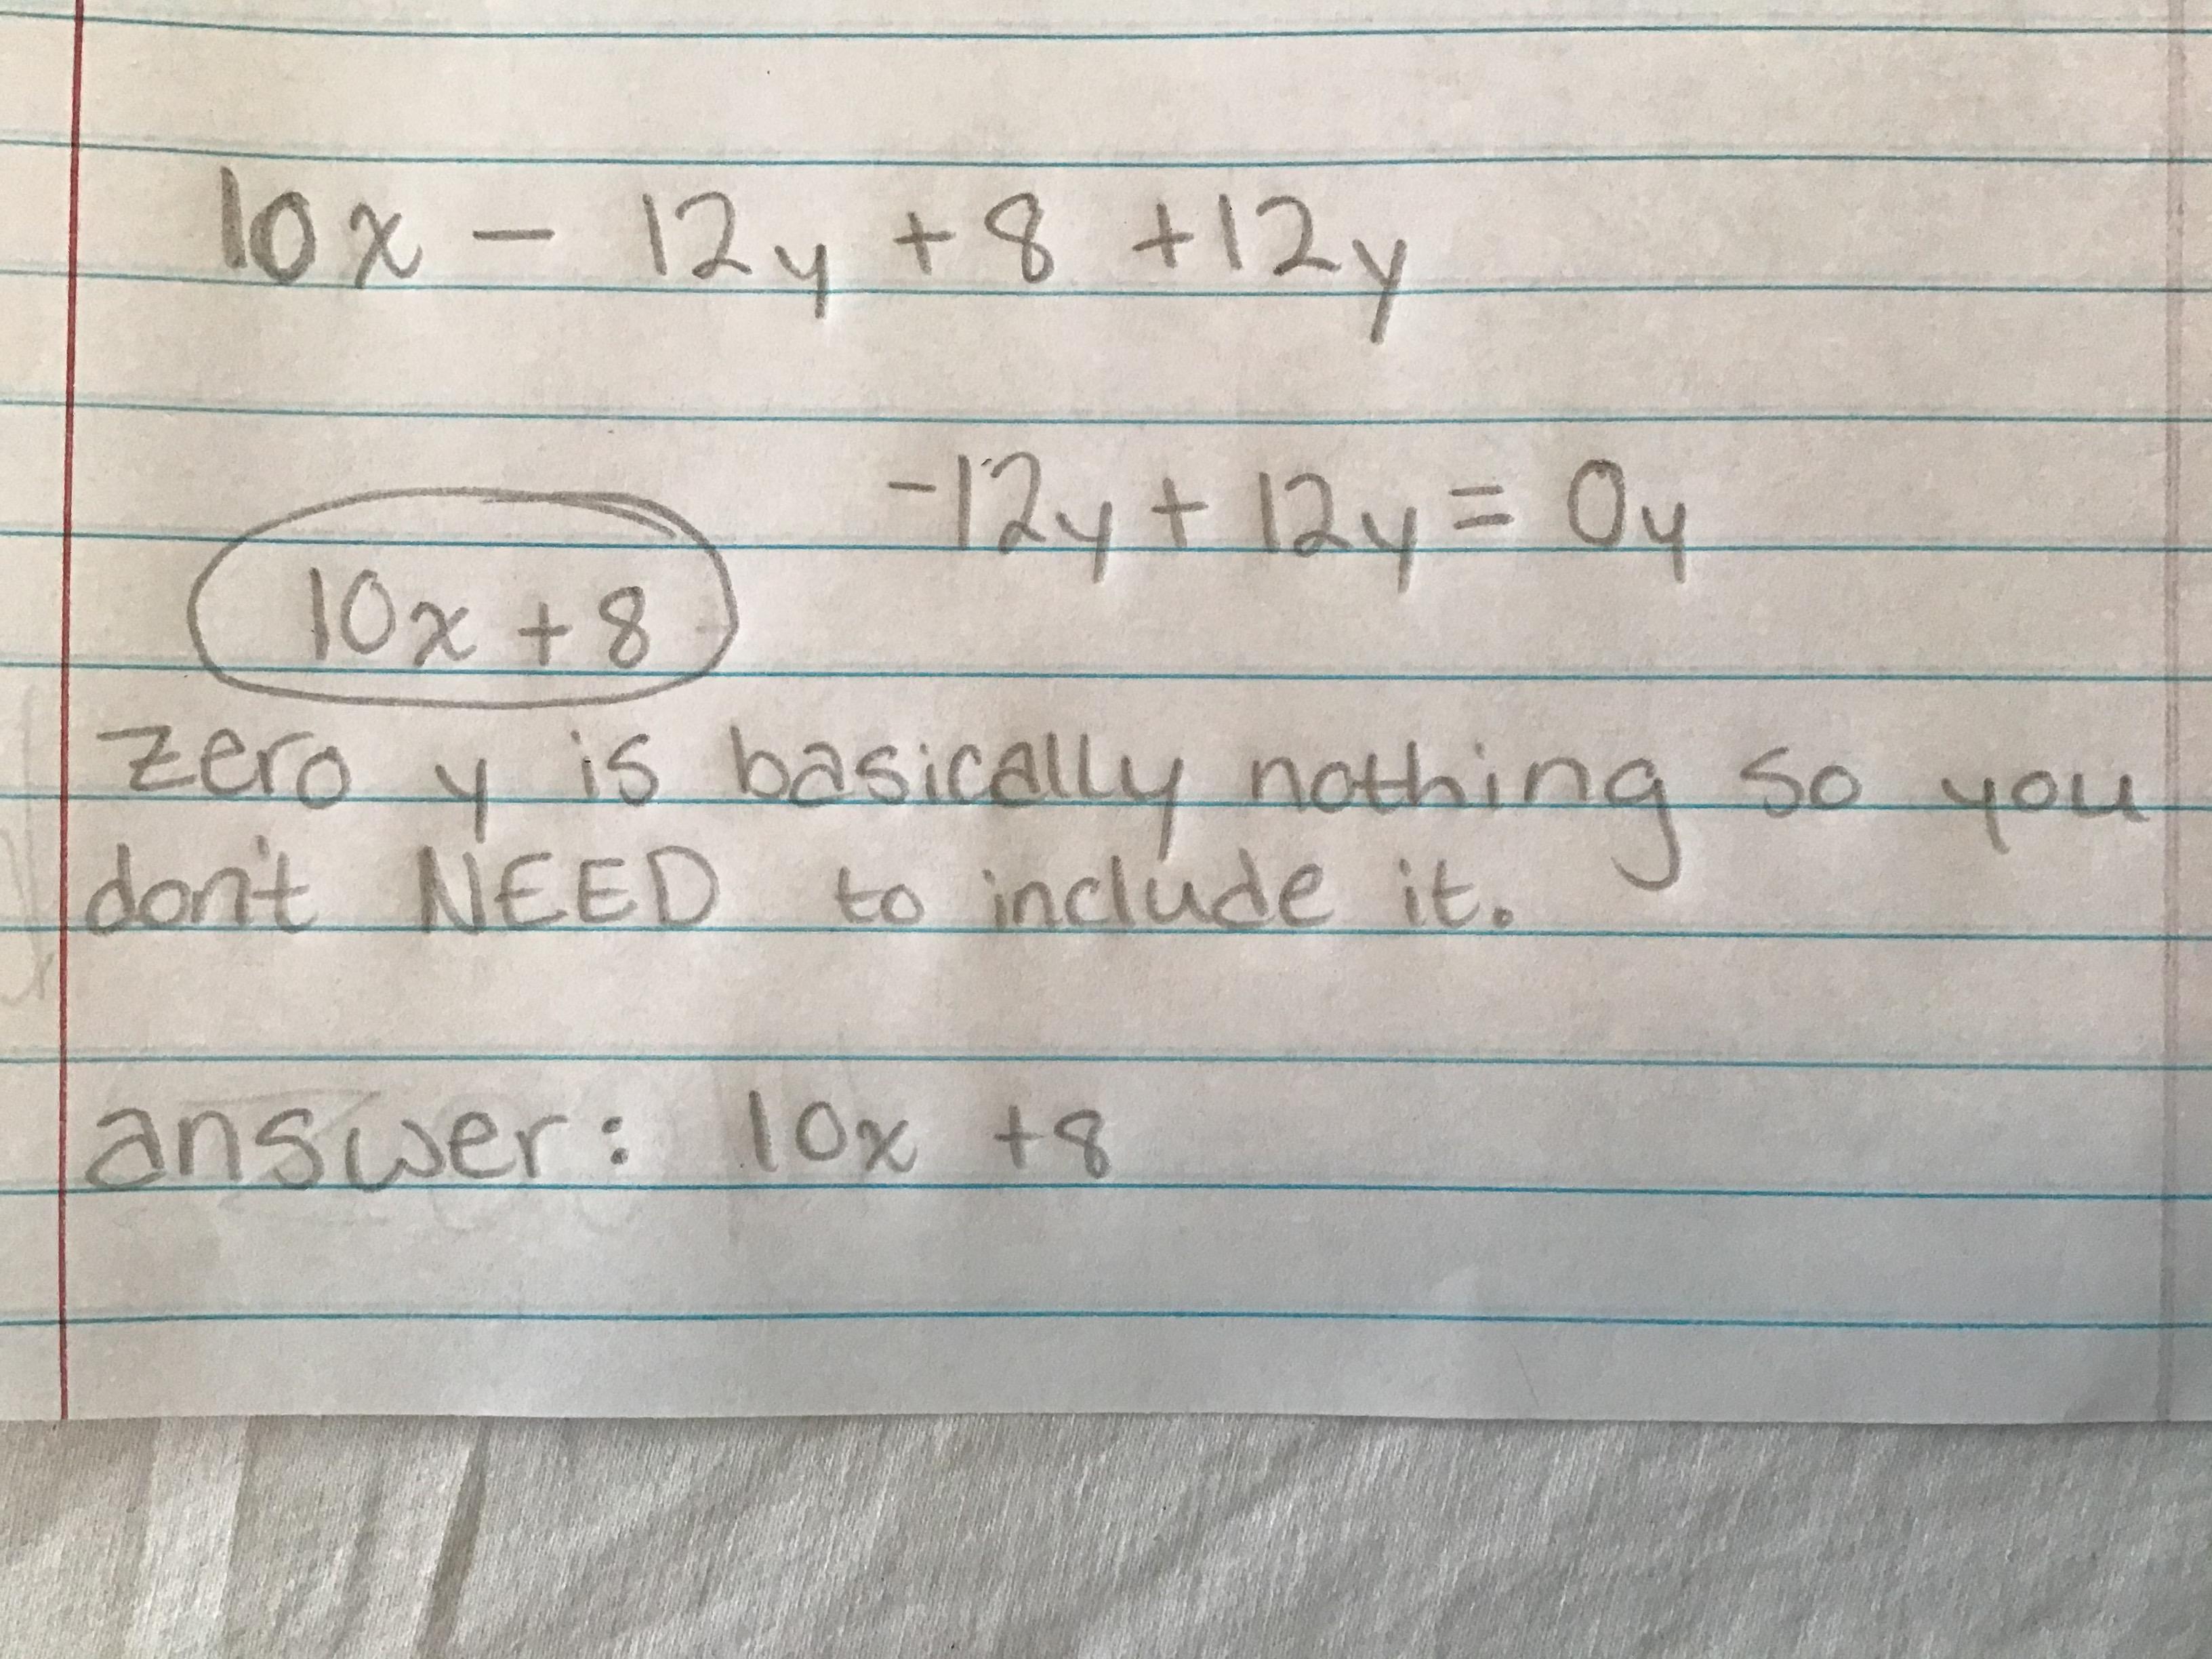 10x - 12y + 8 + 12y
-12y + 12y = 0y
10x + 8
zero y is basically nothing so you
don't NEED to include it.
answer: 10x + 8